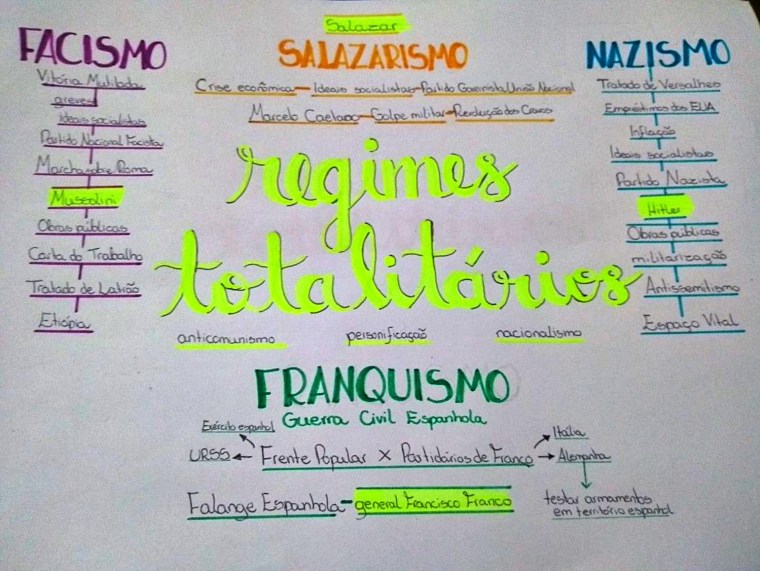 Salazar
FACISMO
SALAZARISMO
NAZISMO
Vitória Mutilada
greves
ideais socialistas
Partido Nacional Facista
Marcha sobre Roma
Mussolini
Obras públicas
Carta do Trabalho
Tratado de Latrão
Etiópia
Crise econômica - Ideais socialistas - Partido Governista União Nacional
Marcelo Caetano - Golpe militar - Revolução dos Cravos
Tratado de Versalhes
Empréstimos dos EUA
Inflação
Ideais socialistas
Partido Nazista
Hitler
Obras públicas
militarização
Antissemitismo
Espaço Vital
regimes
totalitários
anticomunismo personificação nacionalismo
FRANQUISMO
Guerra Civil Espanhola
Exército espanhol
URSS ← Frente Popular X Partidários de Franco → Alemanha
Itália
Falange Espanhola - general Francisco Franco
testar armamentos
em território espanhol